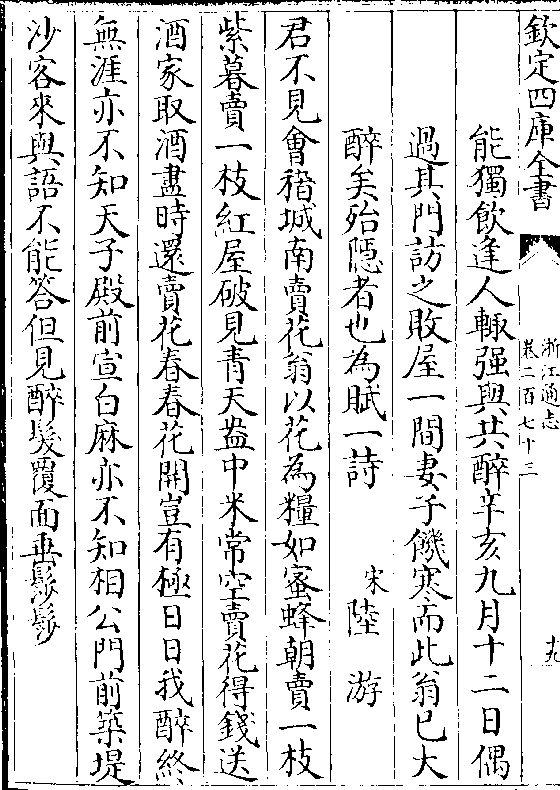 欽定四庫全書
浙江通志
卷二百七十三
十九
能獨飲逢人輙强與共醉辛亥九月十二日偶
過其門訪之敗屋一間妻子饑寒而此翁已大
醉矣殆隠者也為賦一詩
宋 陸游
君不見會稽城南賣花翁以花為糧如蜜蜂朝賣一枝
紫暮賣一枝紅屋破見青天盎中米常空賣花得錢送
酒家取酒盡時還賣花春春花開豈有極日日我醉終
無涯亦不知天子殿前宣白麻亦不知相公門前築堤
沙客來與語不能答但見醉髮覆面垂鬖鬖